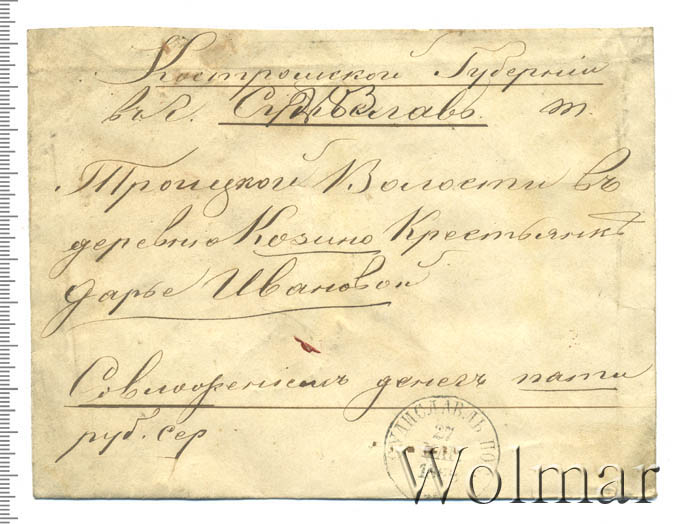 Костромской Губерніи
въ г. Судиславъ. т.
Троицкой Волости въ
деревню Козино Крестьянкѣ
Дарье Ивановой
Совложеніемъ денегъ пяти
руб. сер
СУДИСЛАВЛЬ
27
Wolmar